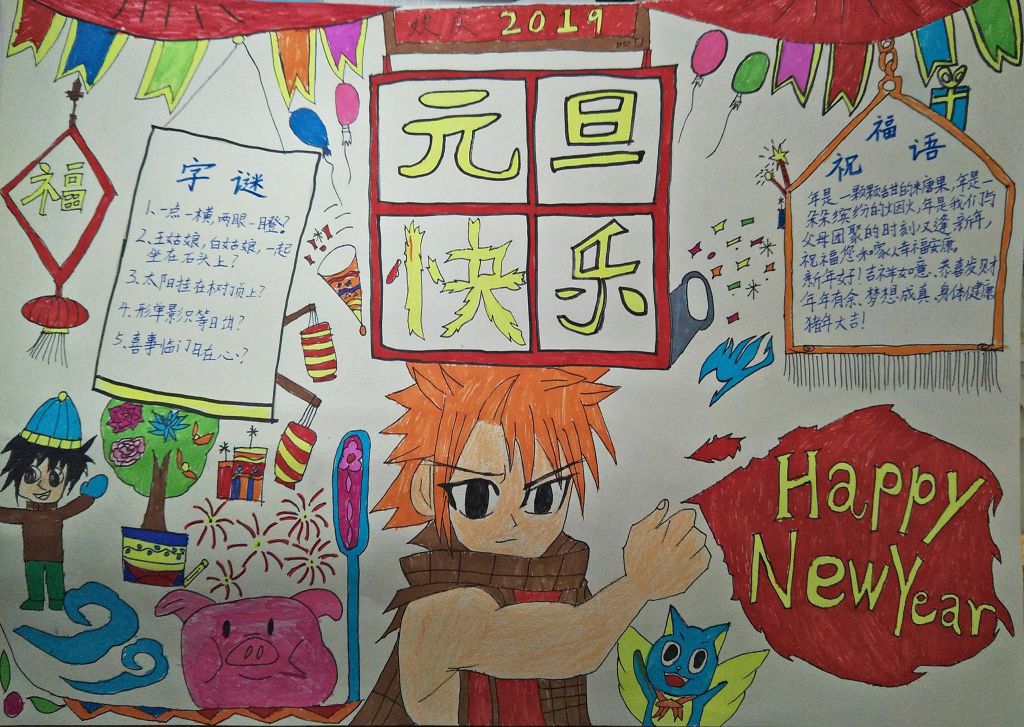 欢庆 2019
元旦
快乐
福
字谜
1、一点一横,两眼一瞪?
2、王姑娘,白姑娘,一起
坐在石头上?
3、太阳挂在树顶上?
4、形单影只等日出?
5、喜事临门自在心?
祝福语
年是一颗颗甜甜的糖果,年是一
朵朵缤纷的烟火,年是我们与
父母团聚的时刻又逢新年,
祝福您和家人幸福安康,
新年好!吉祥如意、恭喜发财
年年有余、梦想成真、身体健康
猪年大吉!
Happy
New Year